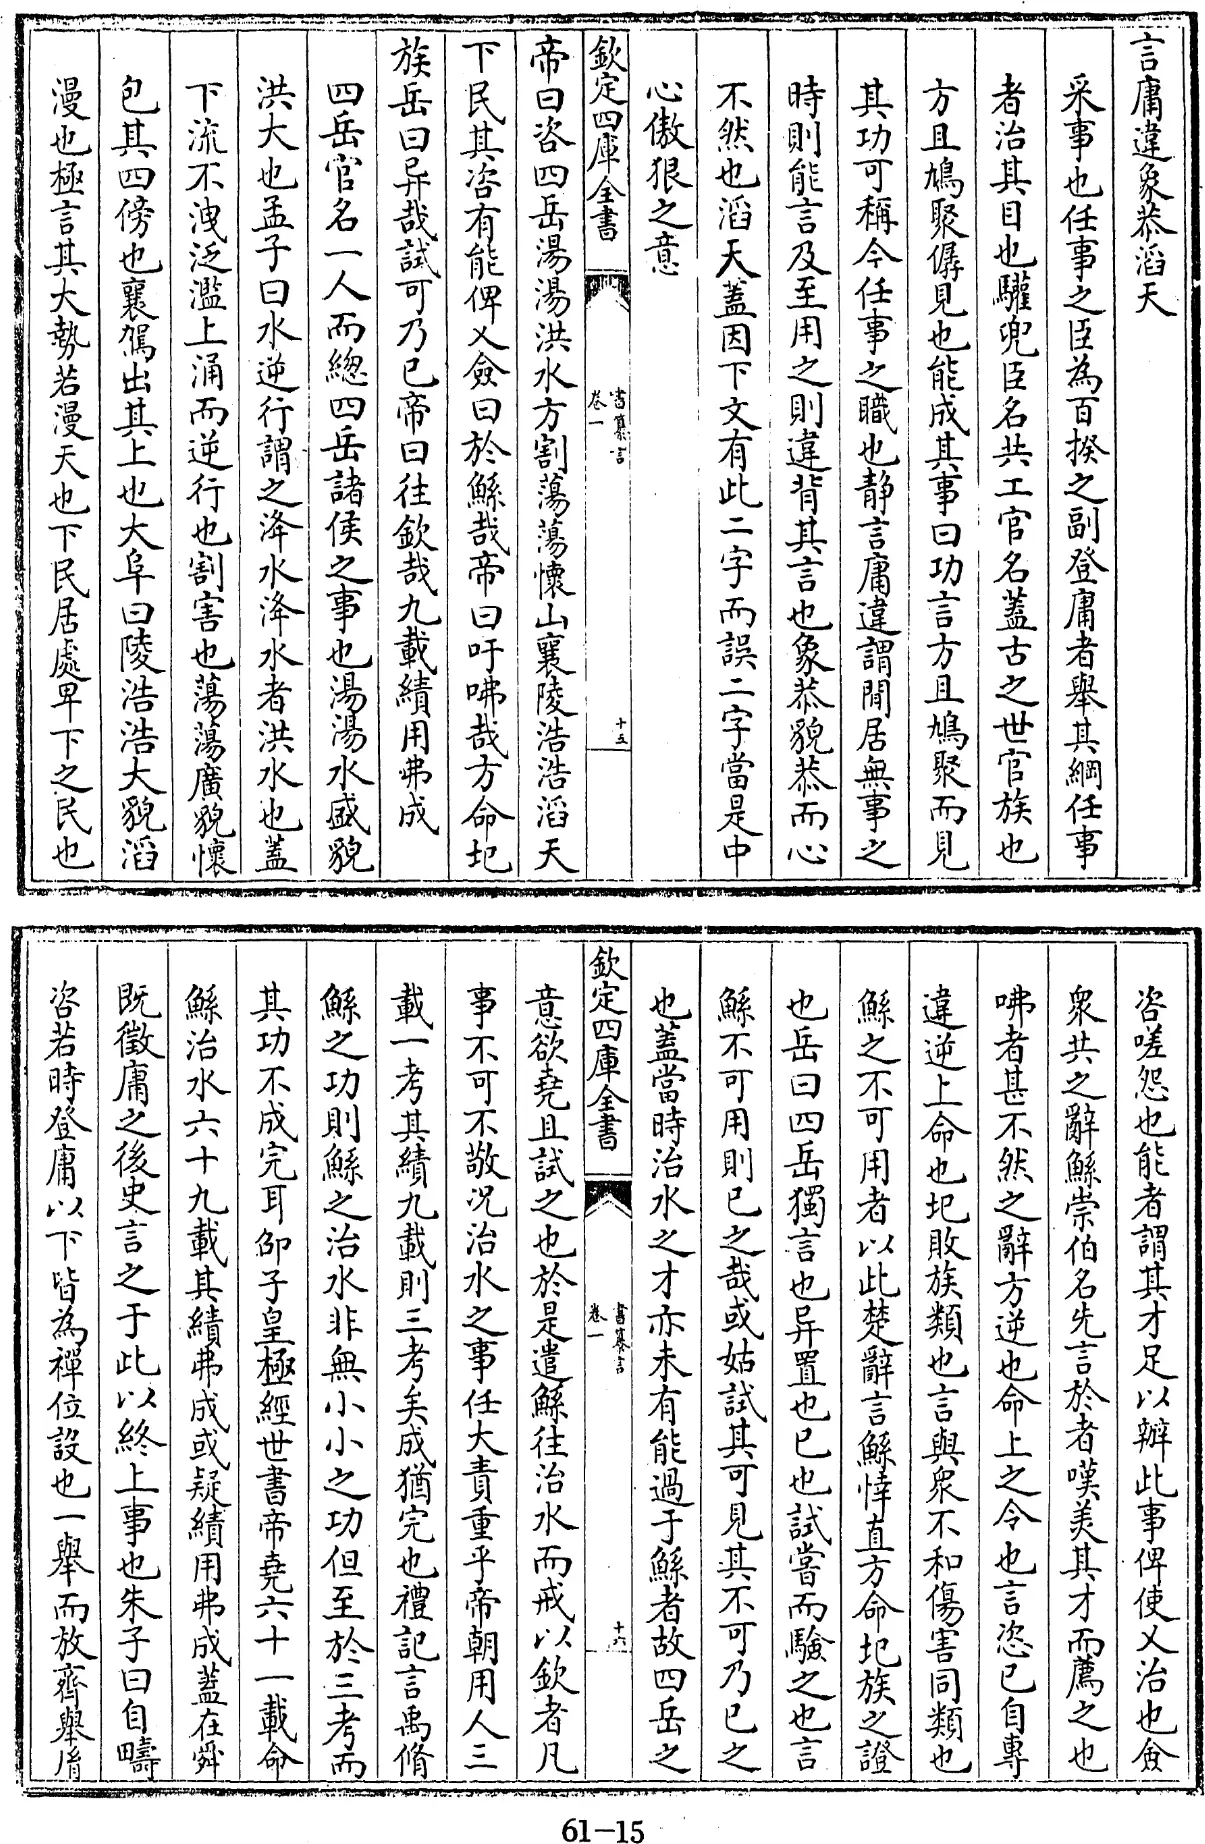 言庸違象恭滔天
采事也任事之臣為百揆之副登庸者舉其綱任事
者治其目也驩兜臣名共工官名蓋古之世官族也
方且鳩聚僝見也能成其事曰功言方且鳩聚而見
其功可稱今任事之職也静言庸違謂閒居無事之
時則能言及至用之則違背其言也象恭貌恭而心
不然也滔天蓋因下文有此二字而誤二字當是中
心傲狠之意
欽定四庫全書
書纂言
卷一
十五
帝曰咨四岳湯湯洪水方割蕩蕩懷山襄陵浩浩滔天
下民其咨有能俾乂僉曰於鯀哉帝曰吁咈哉方命圮
族岳曰异哉試可乃已帝曰往欽哉九載績用弗成
四岳官名一人而總四岳諸侯之事也湯湯水盛貌
洪大也孟子曰水逆行謂之洚水洚水者洪水也蓋
下流不洩泛濫上涌而逆行也割害也蕩蕩廣貌懷
包其四傍也襄駕出其上也大阜曰陵浩浩大貌滔
漫也極言其大勢若漫天也下民居處卑下之民也
咨嗟怨也能者謂其才足以辦此事俾使乂治也僉
衆共之辭鯀崇伯名先言於者嘆美其才而薦之也
咈者甚不然之辭方逆也命上之令也言恣已自專
違逆上命也圮敗族類也言與衆不和傷害同類也
鯀之不可用者以此楚辭言鯀悻直方命圮族之證
也岳曰四岳獨言也异置也已也試嘗而驗之也言
鯀不可用則已之哉或姑試其可見其不可乃已之
也蓋當時治水之才亦未有能過于鯀者故四岳之
欽定四庫全書
書纂言
卷一
十六
意欲堯且試之也於是遣鯀往治水而戒以欽者凡
事不可不敬况治水之事任大責重乎帝朝用人三
載一考其績九載則三考矣成猶完也禮記言禹脩
鯀之功則鯀之治水非無小小之功但至於三考而
其功不成完耳邵子皇極經世書帝堯六十一載命
鯀治水六十九載其績弗成或疑績用弗成蓋在舜
既徵庸之後史言之于此以終上事也朱子曰自疇
咨若時登庸以下皆為禪位設也一舉而放齊舉胤
61-15